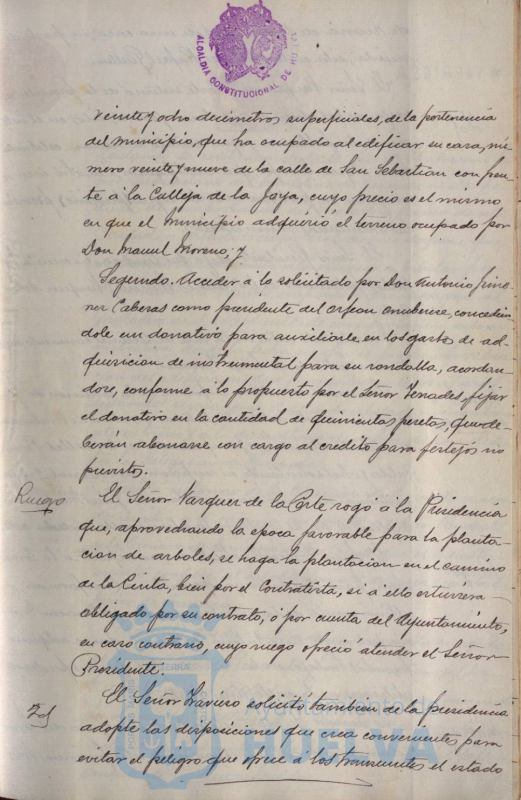 ALCALDIA CONSTITUCIONAL DE HUELVA
veinte y ocho decimetros superficiales, de la pertenencia
del municipio, que ha ocupado al edificar su casa, nú-
mero veinte y nueve de la calle de San Sebastian con fren-
te á la Calleja de la Joya, cuyo precio es el mismo
en que el Municipio adquirió el terreno ocupado por
Don Manuel Moreno; y
Segundo. Acceder á lo solicitado por Don Antonio Jime-
nez Caberas como presidente del Orfeon Onubense, concedien-
dole un donativo para auxiliarle en los gastos de ad-
quisicion de instrumental para su rondalla, acordan-
dose, conforme á lo propuesto por el Señor Tenades, fijar
el donativo en la cantidad de quinientas pesetas, que de-
berán abonarse con cargo al credito para festejos no
previstos.
Ruego
El Señor Vazquez de la Corte rogó á la Presidencia
que, aprovechando la epoca favorable para la planta-
cion de arboles, se haga la plantacion en el camino
de la Cinta, bien por el Contratista, si á ello estuviera
obligado por su contrato, o por cuenta del Ayuntamiento,
en caso contrario, cuyo ruego ofreció atender el Señor
Presidente.
Id
El Señor Traviero solicitó tambien de la presidencia
adopte las disposiciones que crea convenientes para
evitar el peligro que ofrece a los transeuntes el estado
Ayuntamiento de
HUELVA